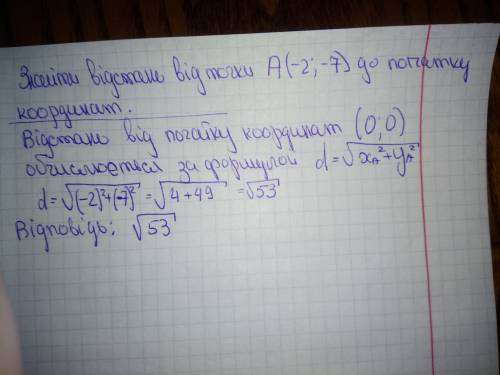 Знайти відстань від точки A(-2;-7) до початку
координат.
Відстань від початку координат (0;0)
обчислюється за формулой d=√(x_A²+y_A²)
d=√((-2)²+(-7)²) =√(4+49) =√53
Відповідь: √53